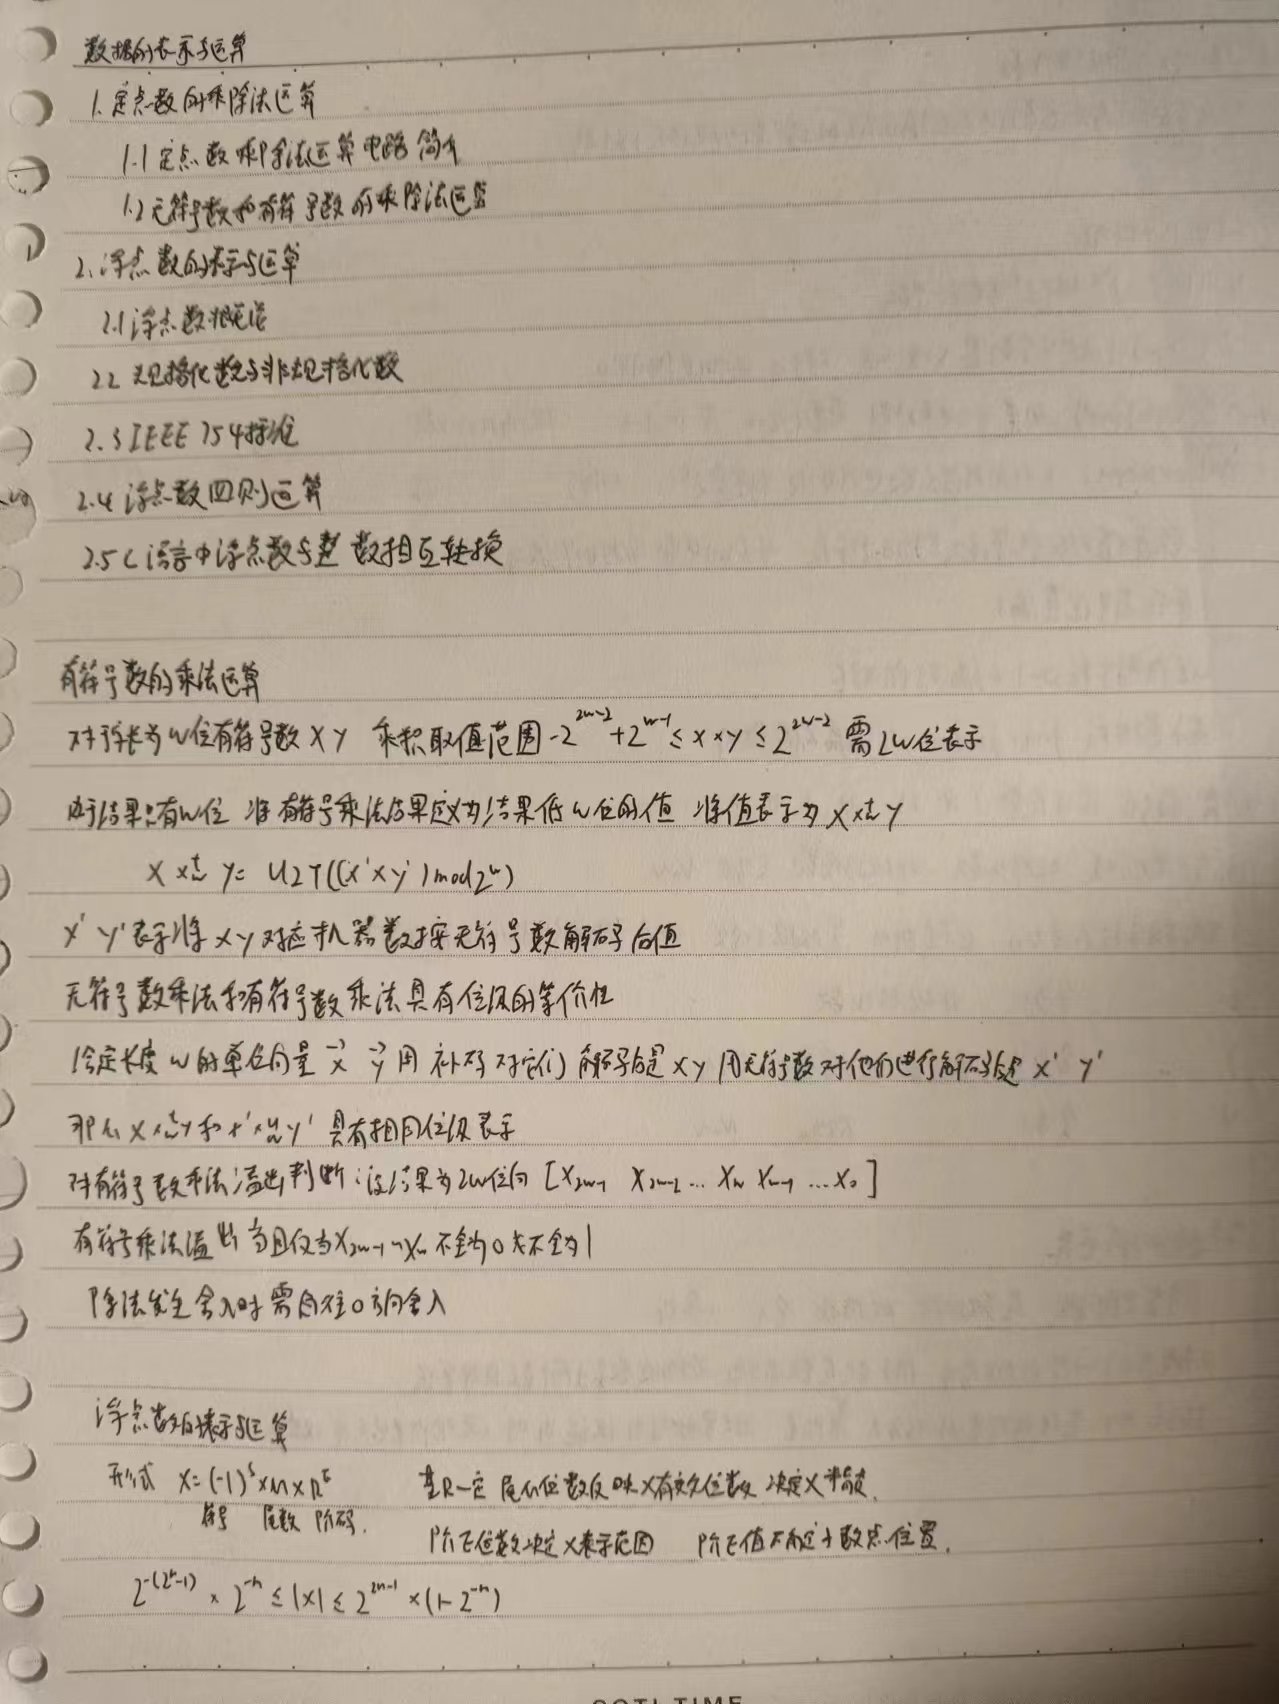 数据的表示与运算
1. 定点数的乘除法运算
1.1 定点数乘除法运算电路简介
1.2 无符号数和有符号数的乘除法运算
2. 浮点数的表示与运算
2.1 浮点数概述
2.2 规格化数与非规格化数
2.3 IEEE 754标准
2.4 浮点数四则运算
2.5 C语言中浮点数与整数相互转换
有符号数的乘法运算
对于字长为w位有符号数 x y 乘积取值范围 -2^{2w-2}+2^{w-1} ≤ x×y ≤ 2^{2w-2} 需2w位表示
由于结果只有w位 将有符号乘法结果定义为结果低w位的值 将值表示为 x ×^t_w y
x ×^t_w y = U2T((x'×y') mod 2^w)
x' y'表示将 x y 对应机器数按无符号数解码后值
无符号数乘法和有符号数乘法具有位级的等价性
给定长度 w 的单位向量 \vec{x} \vec{y} 用 补码 对它们 解码后是 x y 用无符号数对他们进行解码后是 x' y'
那么 x ×^t_w y 和 x' ×^u_w y' 具有相同位级表示
对有符号数乘法溢出判断：设结果为2w位向 [x_{2w-1} x_{2w-2} ... x_w x_{w-1} ... x_0]
有符号乘法溢出 当且仅当 x_{2w-1} ~ x_w 不全为0或不全为1
除法发生舍入时 需向往0方向舍入
浮点数的表示与运算
形式 x=(-1)^s×M×R^E 基R一定 尾M位数反映x有效位数 决定x精度.
符号 尾数 阶码.
阶E位数决定x表示范围 阶E值不确定小数点位置.
2^{-(2^n-1)} × 2^{-n} ≤ |x| ≤ 2^{2n-1} × (1-2^{-n})